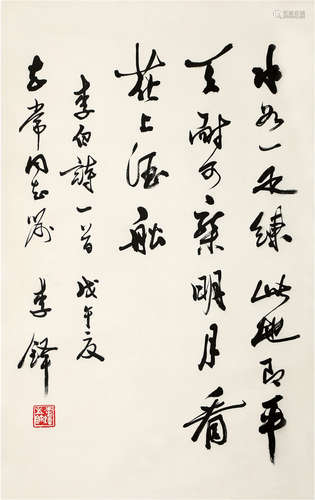 水如一匹练此地即平
天耐可乘明月看
花上酒船
李白诗一首 戊午夏
志常同志属 李铎